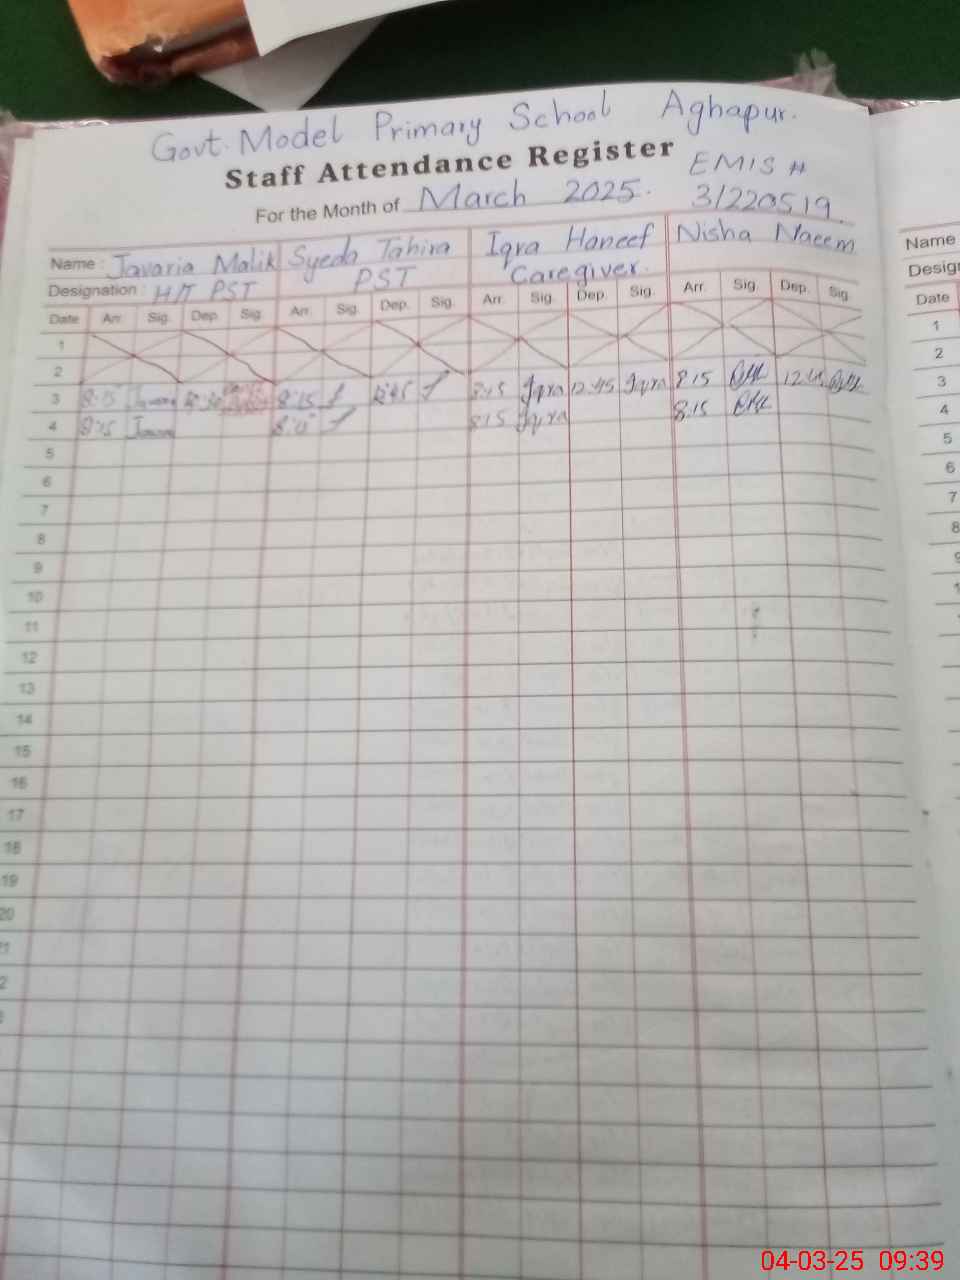 Govt. Model Primary School Aghapur.
Staff Attendance Register
EMIS #
For the Month of March 2025.
31220519
Name : Javaria Malik Syeda Tahira Iqra Haneef Nisha Naeem
Designation : H/T PST PST Caregiver.
Date Arr. Sig. Dep. Sig. Arr. Sig. Dep. Sig. Arr. Sig. Dep. Sig. Arr. Sig. Dep. Sig.
1
2
3 8:15 8:15 12:45 8:15 Iqra 12:45 Iqra 8 15
4 8:15 8:15 Iqra 8:15
5
6
7
8
9
10
11
12
13
14
15
16
17
18
19
20
Name
Date
1
2
3
4
5
6
7
8
04-03-25 09:39